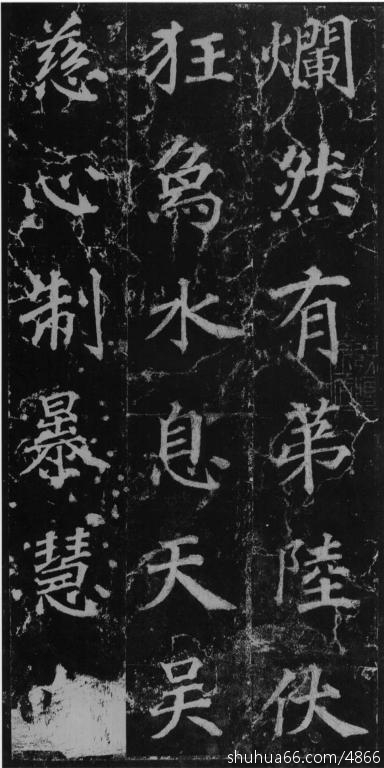 爛然有苐陸伏
狂象水息天吳
慈心制暴慧
shuhua66.com/4866